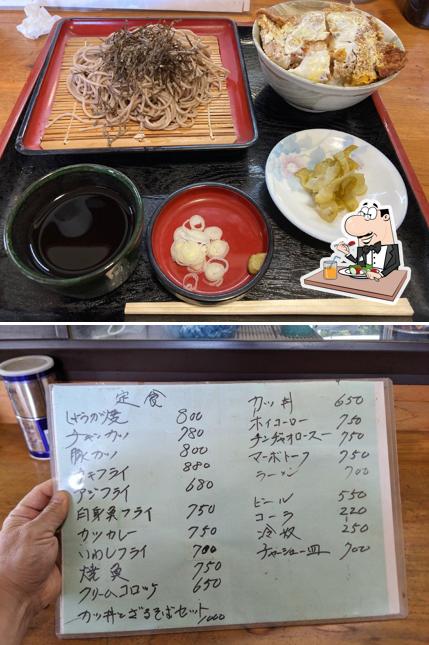 定食
しょうが焼 800
チキンカツ 780
豚カツ 800
カキフライ 880
アジフライ 680
白身魚フライ 750
カツカレー 750
いわしフライ 700
焼魚 750
クリームコロッケ 650
カツ丼とざるそばセット
カツ丼 650
ホイコーロー 750
チンジャオロースー 750
マーボトーフ 750
ラーメン 700
ビール 550
コーラ 220
冷奴 250
チャーシュー皿 700